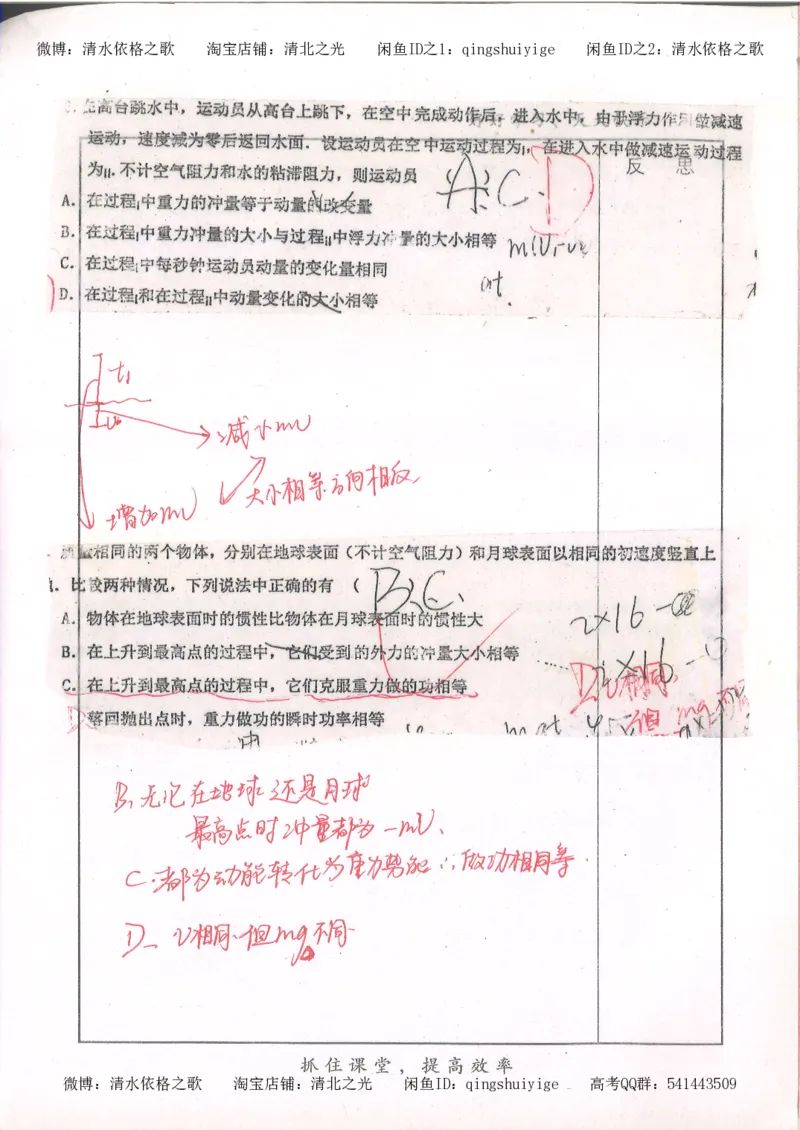 微博：清水依格之歌 淘宝店铺：清北之光 闲鱼ID之1：qingshuiyige 闲鱼ID之2：清水依格之歌
在高台跳水中，运动员从高台上跳下，在空中完成动作后，进入水中，由于浮力作用做减速
运动，速度减为零后返回水面．设运动员在空中运动过程为Ⅰ，在进入水中做减速运动过程
为Ⅱ．不计空气阻力和水的粘滞阻力，则运动员
反思
A.C.D
A．在过程Ⅰ中重力的冲量等于动量的改变量
B．在过程Ⅰ中重力冲量的大小与过程Ⅱ中浮力冲量的大小相等
C．在过程Ⅰ中每秒钟运动员动量的变化量相同
D．在过程Ⅰ和在过程Ⅱ中动量变化的大小相等
t₁
减小mv
大小相等方向相反
增加mv
质量相同的两个物体，分别在地球表面（不计空气阻力）和月球表面以相同的初速度竖直上
．比较两种情况，下列说法中正确的有 （
B.C.
A．物体在地球表面时的惯性比物体在月球表面时的惯性大
B．在上升到最高点的过程中，它们受到的外力的冲量大小相等
C．在上升到最高点的过程中，它们克服重力做的功相等
D 落回抛出点时，重力做功的瞬时功率相等
D. v相同，
但mg不同
B. 无论在地球还是月球
最高点时冲量都为-mv.
C.都为动能转化为重力势能∴做功相同等.
D. v相同.但mg不同.
抓住课堂，提高效率
微博：清水依格之歌 淘宝店铺：清北之光 闲鱼ID：qingshuiyige 高考QQ群：541443509